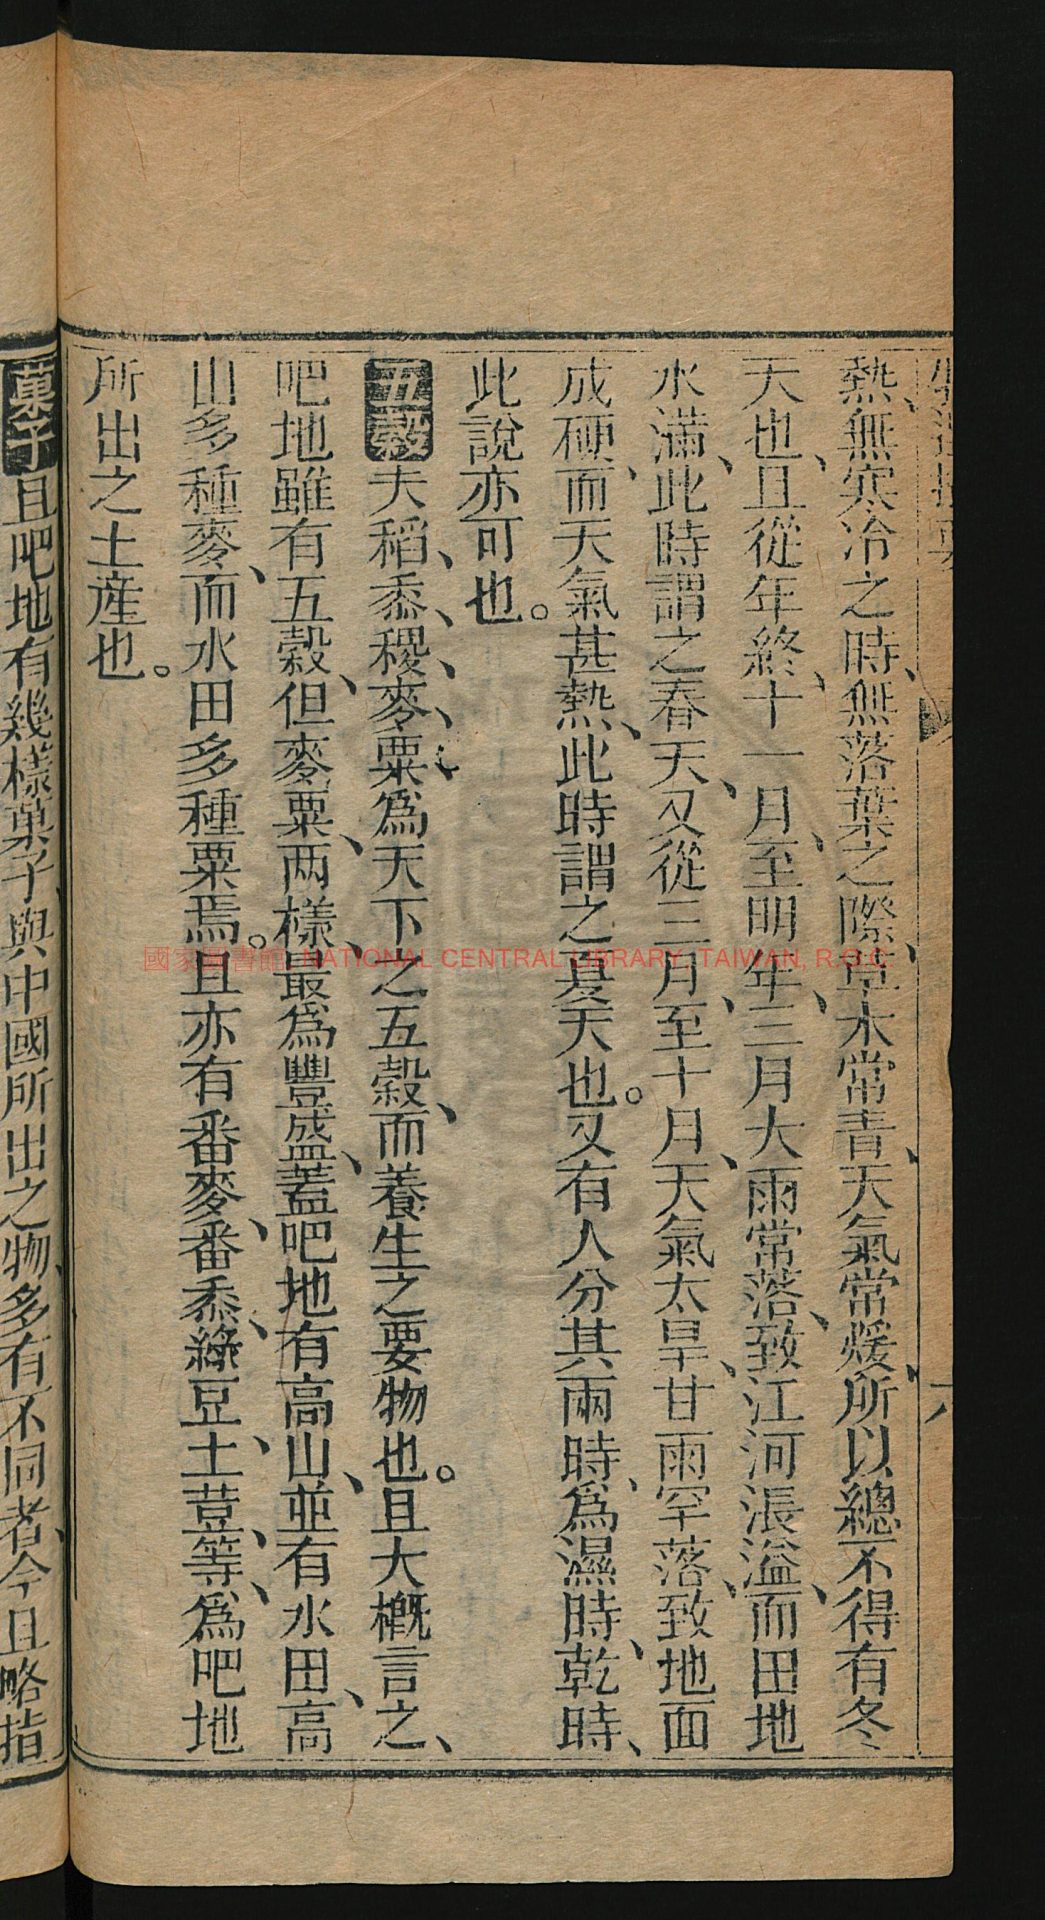 熱、無寒冷之時、無落葉之際、草木常青、天氣常煖、所以總不得有冬
天也、且從年終、十一月、至明年、三月大雨常落、致江河漲溢、而田地
水滿、此時謂之春天、又從三月、至十月、天氣太旱、甘雨罕落、致地面
成硬、而天氣甚熱、此時謂之夏天也。又有人分其兩時、為濕時、乾時、
此說亦可也。
五穀夫稻、黍、稷、麥、粟、為天下之五穀、而養生之要物也。且大概言之、
吧地雖有五穀、但麥粟、两樣、最為豐盛、蓋吧地有高山、並有水田、高
山多種麥、而水田多種粟焉。且亦有番麥、番黍、綠豆、土荳、等、為吧地
所出之土產也。
菓子且吧地有幾樣菓子、與中國所出之物、多有不同者、今且略指
國家圖書館 NATIONAL CENTRAL LIBRARY, TAIWAN, R.O.C